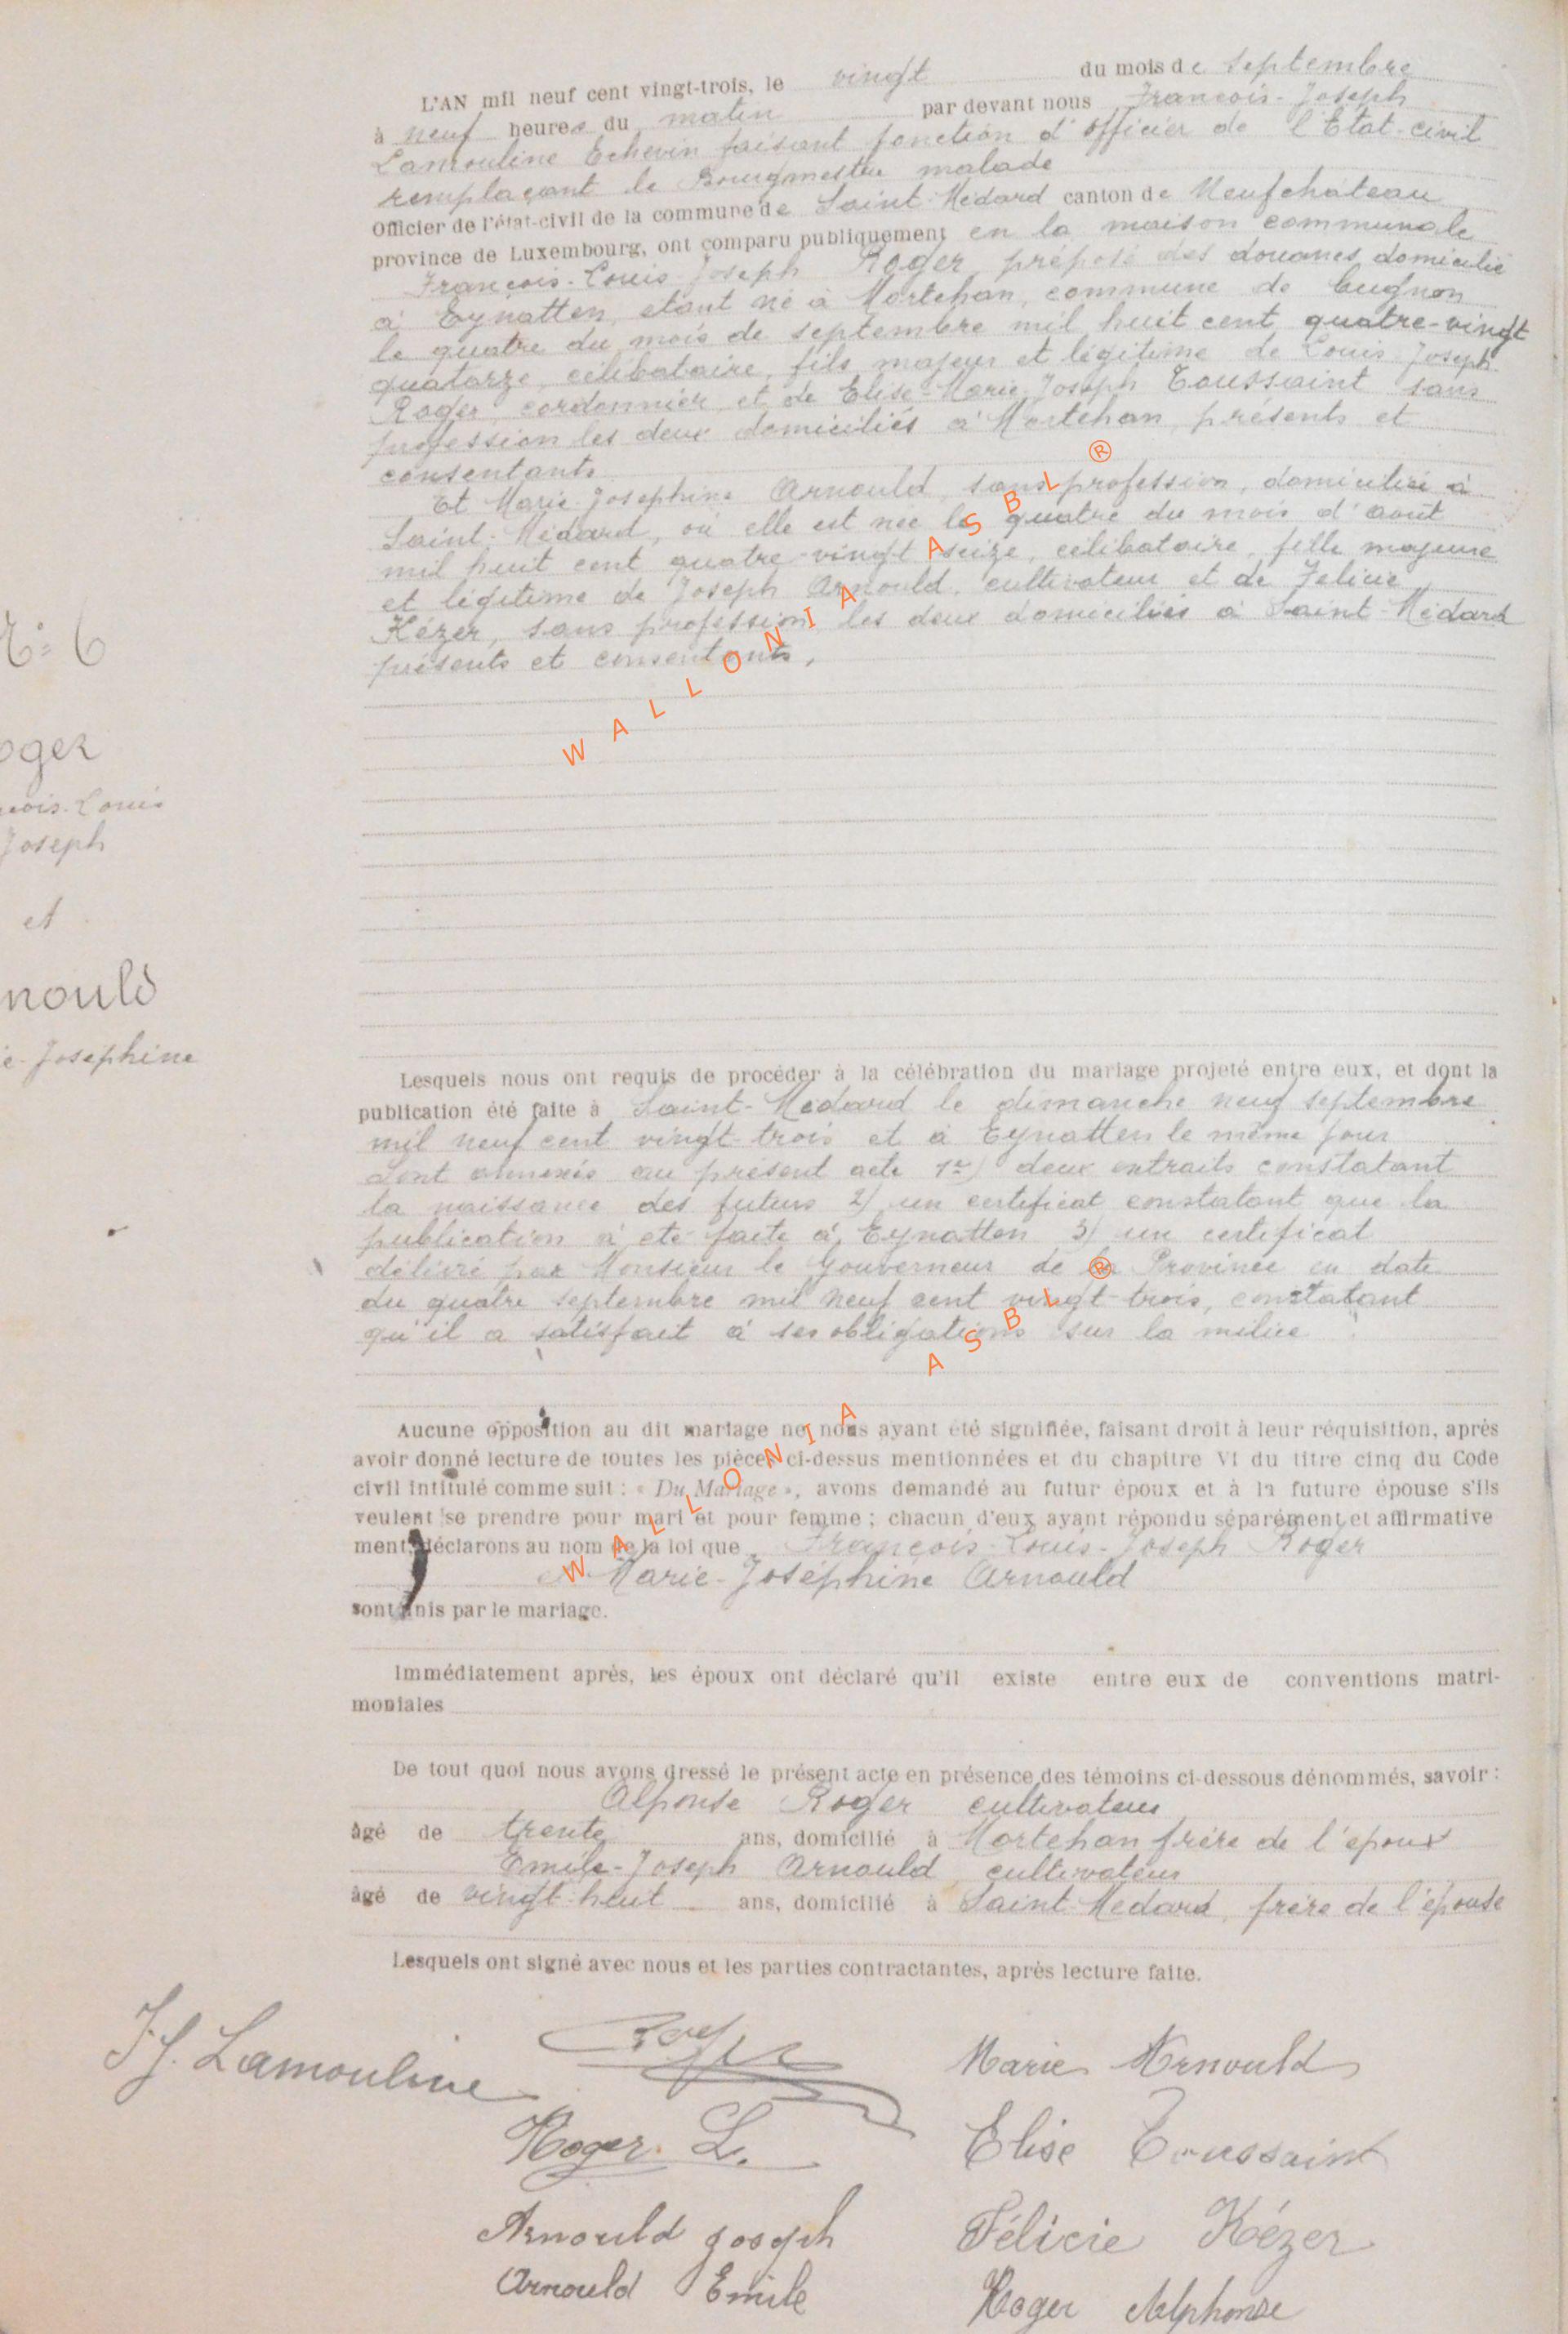 L'AN mil neuf cent vingt-trois, le vingt du mois de septembre
à neuf heures du matin par devant nous François-Joseph
Lamouline Echevin faisant fonction d'officier de l'Etat-civil
remplaçant le Bourgmestre malade
Officier de l'état-civil de la commune de Saint-Médard canton de Neufchateau
province de Luxembourg, ont comparu publiquement en la maison communale
François-Louis-Joseph Roger préposé des douanes domicilié
à Eynatten, étant né à Mortehan, commune de Cugnon
le quatre du mois de septembre mil huit cent quatre-vingt
quatorze, célibataire, fils majeur et légitime de Louis-Joseph
Roger, cordonnier et de Elise-Marie-Joseph Toussaint sans
profession les deux domiciliés à Mortehan, présents et
consentants
Et Marie-Josephine Arnould, sans profession, domiciliée à
Saint-Médard, où elle est née le quatre du mois d'août
mil huit cent quatre-vingt seize, célibataire, fille majeure
et légitime de Joseph Arnould, cultivateur et de Felicie
Kézer, sans profession, les deux domiciliés à Saint-Médard
présents et consentants,
N° 6
oger
çois-Louis
Joseph
et
nould
ie-Josephine
Lesquels nous ont requis de procéder à la célébration du mariage projeté entre eux, et dont la
publication été faite à Saint-Médard le dimanche neuf septembre
mil neuf cent vingt-trois et à Eynatten le même jour
Sont annexés au présent acte 1er) deux extraits constatant
la naissance des futurs 2) un certificat constatant que la
publication à été faite à Eynatten 3) un certificat
délivré par Monsieur le Gouverneur de la Province en date
du quatre septembre mil neuf cent vingt-trois, constatant
qu'il a satisfait à ses obligations sur la milice
Aucune opposition au dit mariage ne nous ayant été signifiée, faisant droit à leur réquisition, après
avoir donné lecture de toutes les pièces ci-dessus mentionnées et du chapitre VI du titre cinq du Code
civil intitulé comme suit : « Du Mariage », avons demandé au futur époux et à la future épouse s'ils
veulent se prendre pour mari et pour femme ; chacun d'eux ayant répondu séparément et affirmative
ment, déclarons au nom de la loi que François-Louis-Joseph Roger
et Marie-Joséphine Arnould
sont unis par le mariage.
Immédiatement après, les époux ont déclaré qu'il existe entre eux de conventions matri-
moniales
De tout quoi nous avons dressé le présent acte en présence des témoins ci-dessous dénommés, savoir :
Alponse Roger cultivateur
âgé de trente ans, domicilié à Mortehan frère de l'époux
Emile-Joseph Arnould cultivateur
âgé de vingt-huit ans, domicilié à Saint-Médard, frère de l'épouse
Lesquels ont signé avec nous et les parties contractantes, après lecture faite.
FJ. Lamouline Roger Marie Arnould
Roger L. Elise Toussaint
Arnould Joseph Félicie Kézer
Arnould Emile Roger Alphonse
WALLONIA ASBL ®
WALLONIA ASBL ®